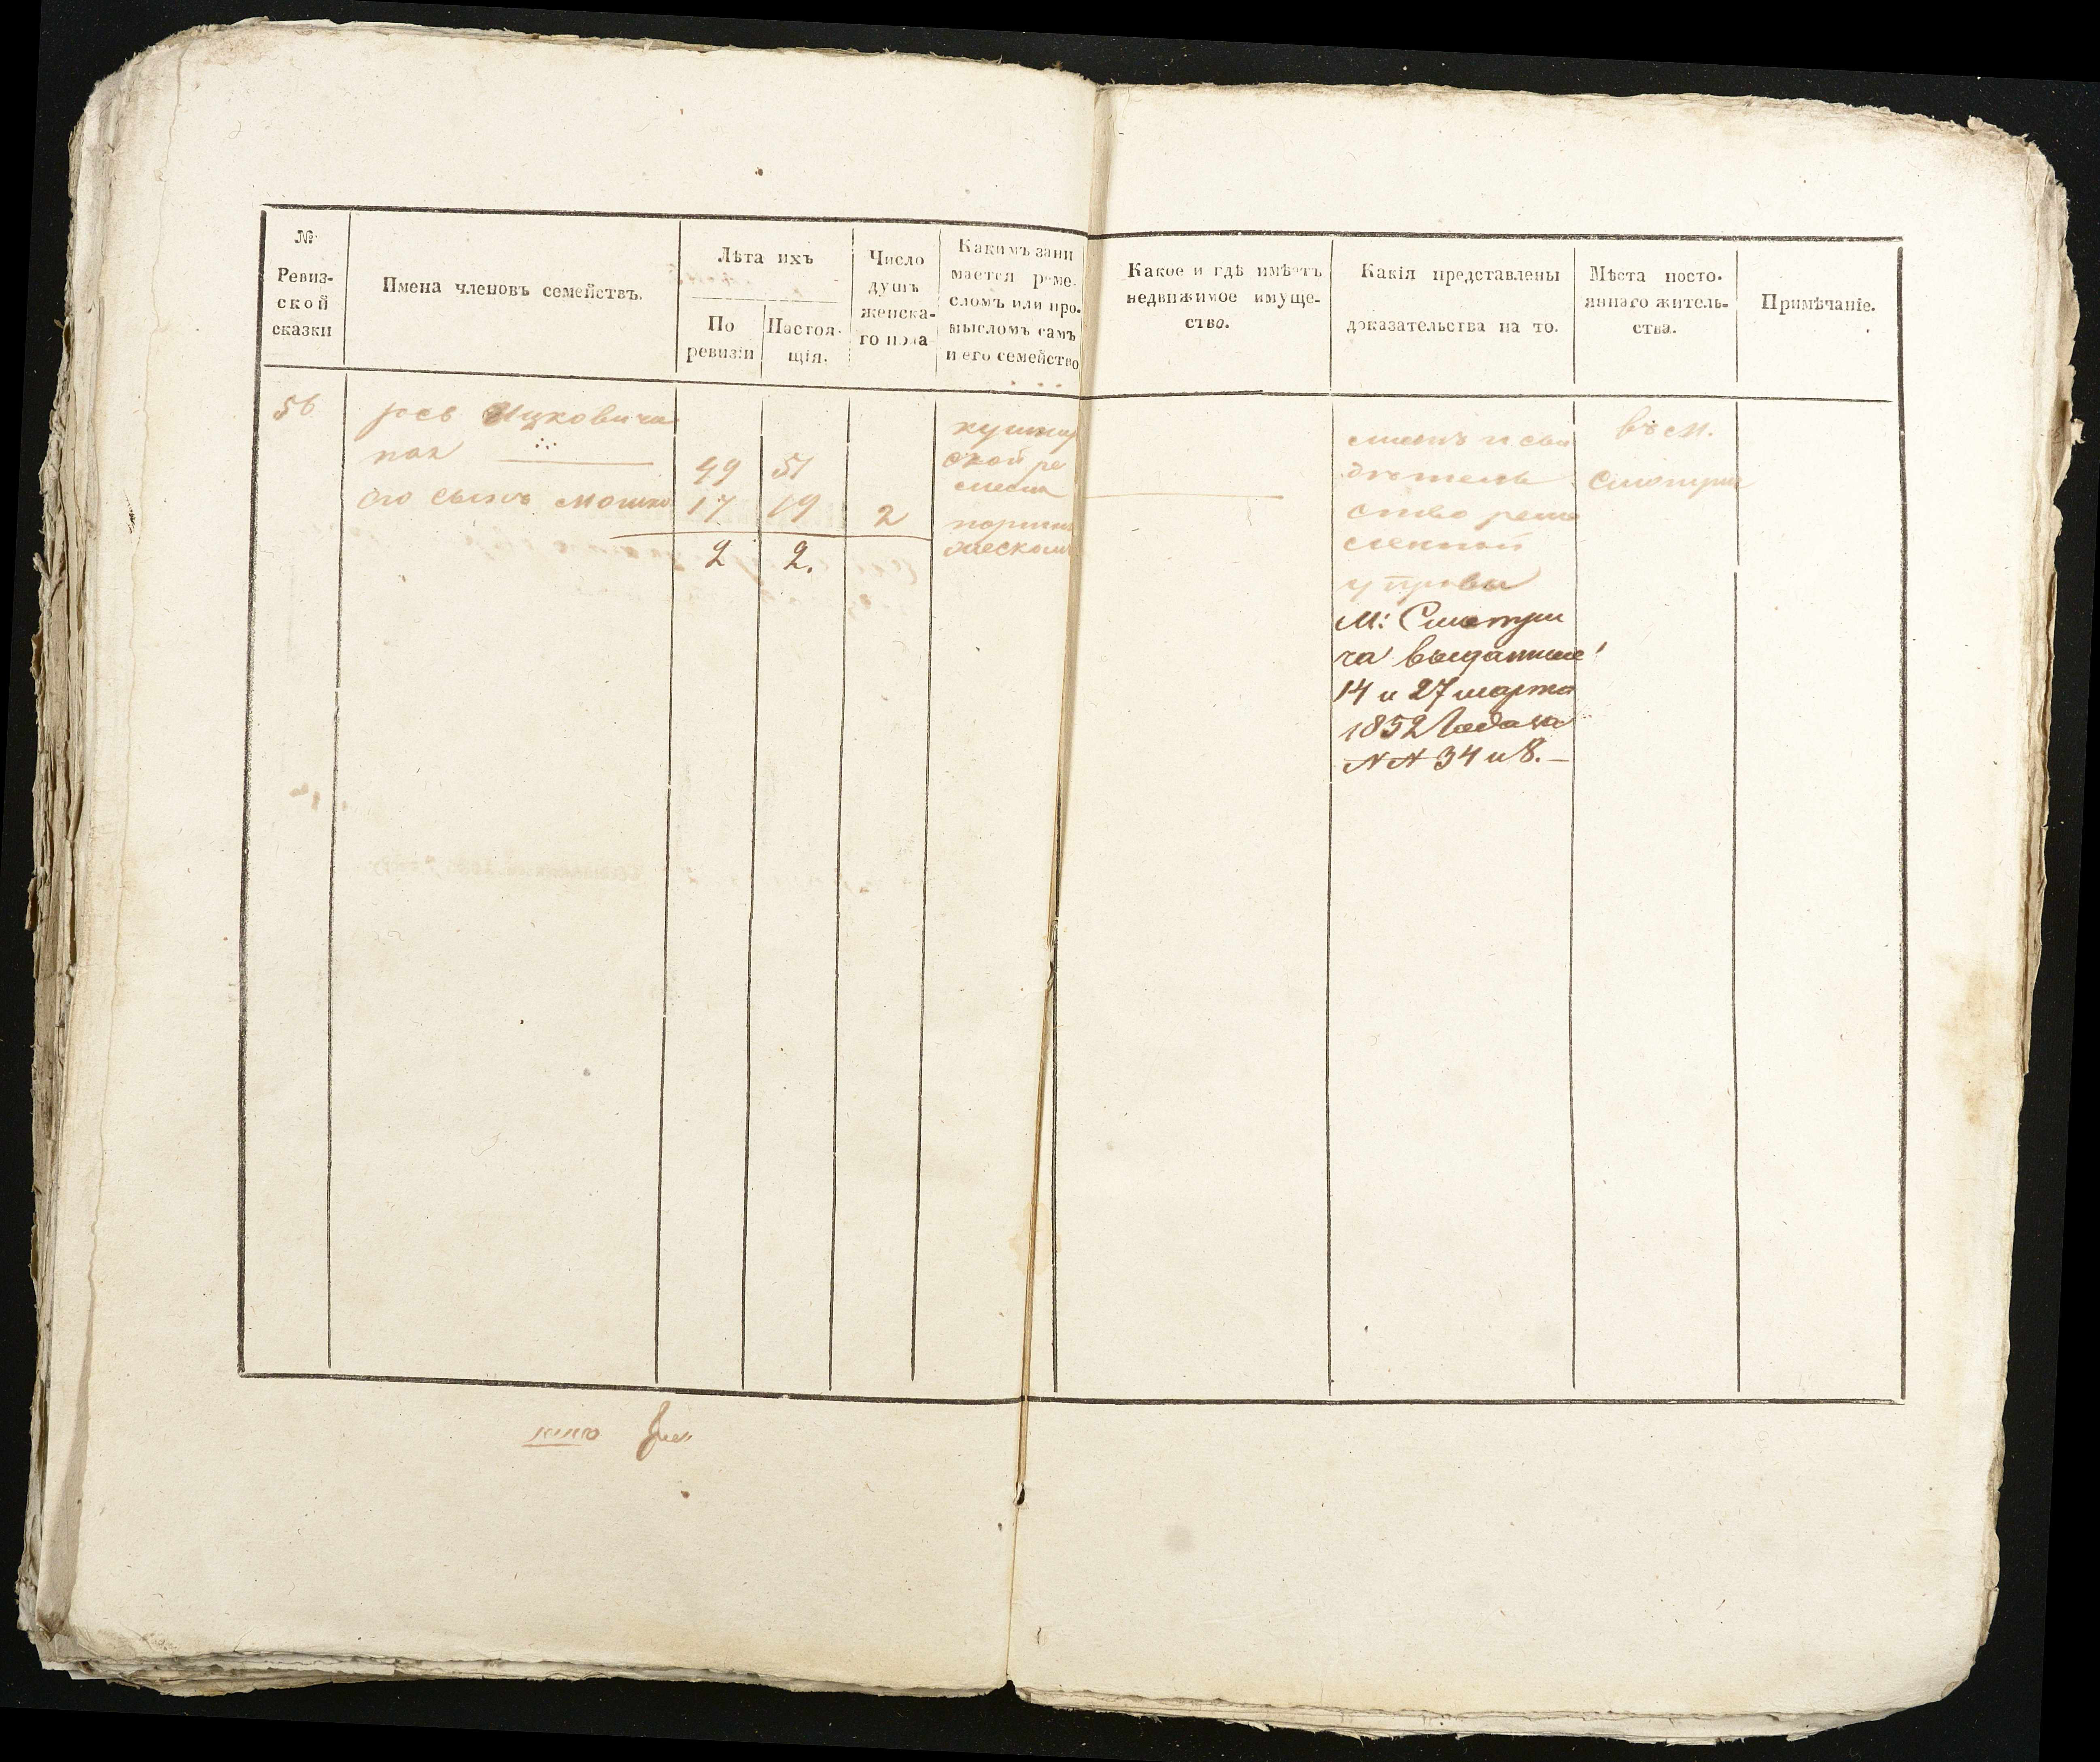 №
Ревиз-
ской
сказки
Имена членовъ семействъ.
Лѣта ихъ
По
ревизіи
Настоя-
щія.
Число
душъ
женска-
го пола
Какимъ зани
мается реме-
сломъ или про-
мысломъ самъ
и его семейство
Какое и гдѣ имѣетъ
недвижимое имуще-
ство.
Какія представлены
доказательства на то.
Мѣста посто-
яннаго житель-
ства.
Примѣчаніе.
56
Ицковича
49 51
его сынъ Мошко 17 19 2
2 2.
кушнир
ской ре
месла
и сви
дѣтель
ство реме
сленной
управы
М: Смотри
ча выданные
14 и 27 марта
1852 Года за
№ № 34 и 8. —
въ м.
Смотриче